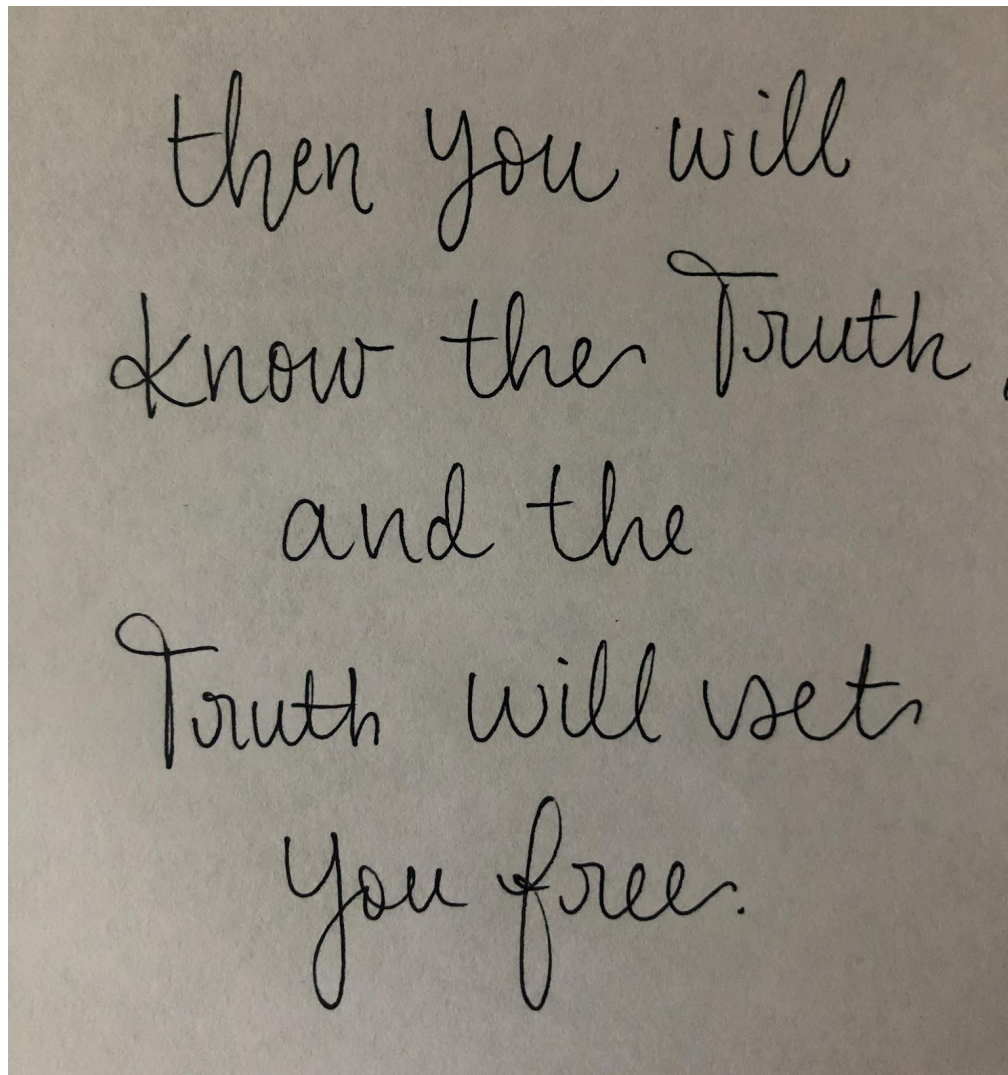 then you will
know the Truth,
and the
Truth will set
you free.